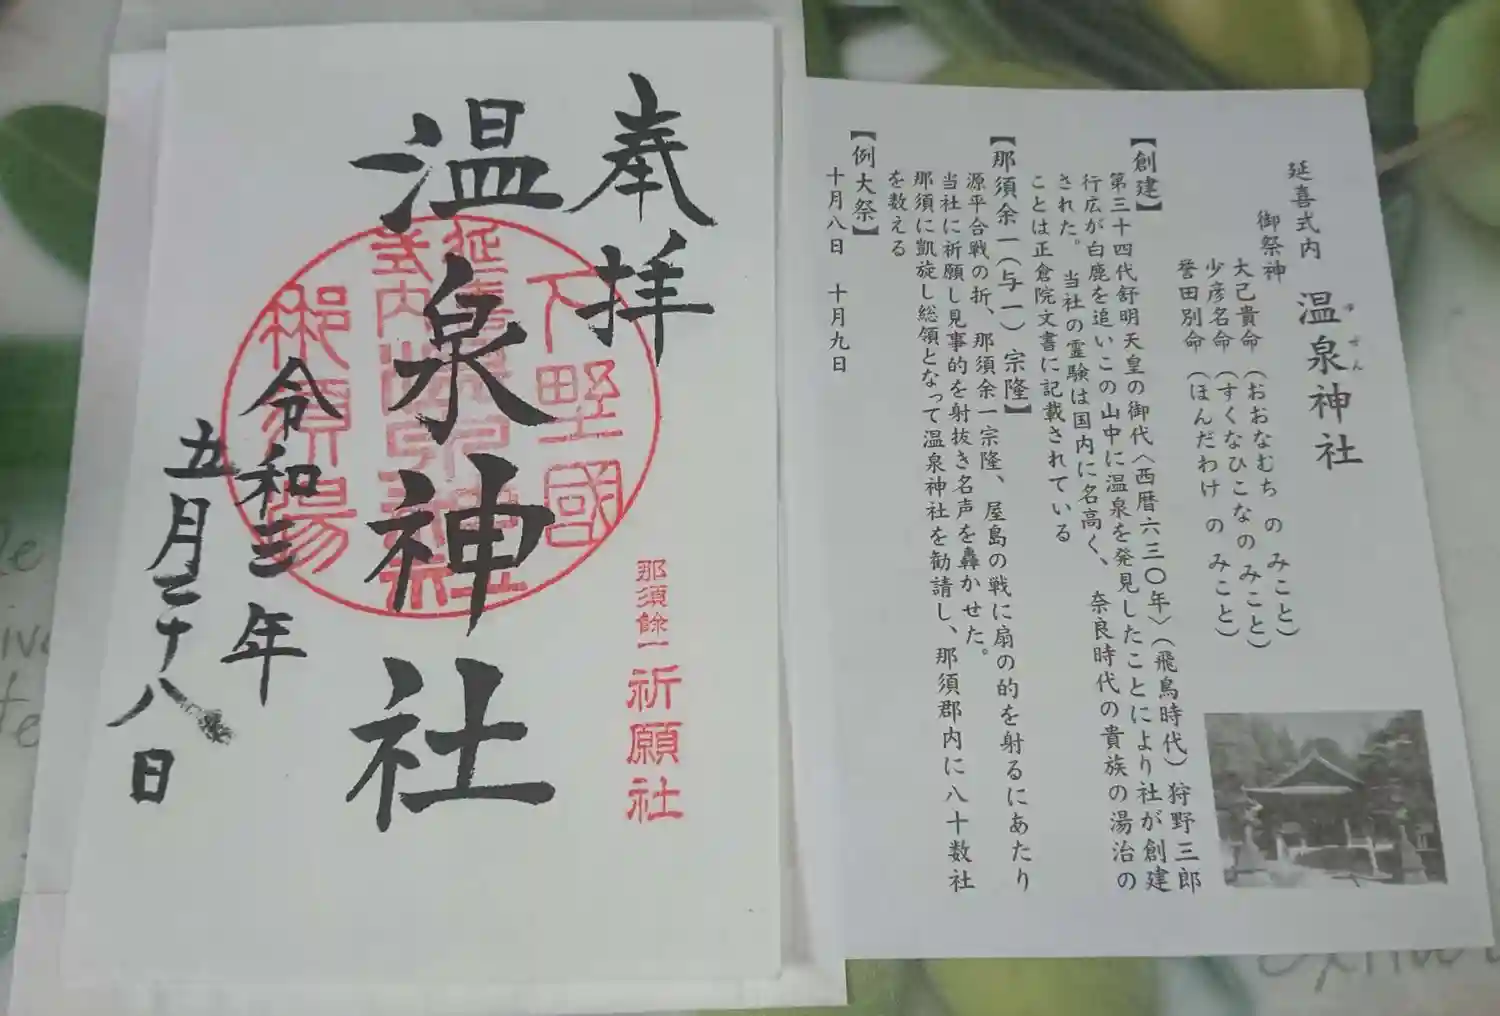 奉拝
温泉神社
令和三年
五月二十八日
下野國
延喜式内
温泉神社
那須湯
那須餘一
祈願社
延喜式内 温泉神社
ゆせん
御祭神
大己貴命(おおなむち のみこと)
少彦名命(すくなひこなのみこと)
誉田別命(ほんだわけ のみこと)
【創建】
第三十四代舒明天皇の御代〈西暦六三〇年〉(飛鳥時代)狩野三郎
行広が白鹿を追いこの山中に温泉を発見したことにより社が創建
された。 当社の霊験は国内に名高く、奈良時代の貴族の湯治の
ことは正倉院文書に記載されている
【那須余一(与一)宗隆】
源平合戦の折、那須余一宗隆、屋島の戦に扇の的を射るにあたり
当社に祈願し見事的を射抜き名声を轟かせた。
那須に凱旋し総領となって温泉神社を勧請し、那須郡内に八十数社
を数える
【例大祭】
十月八日 十月九日